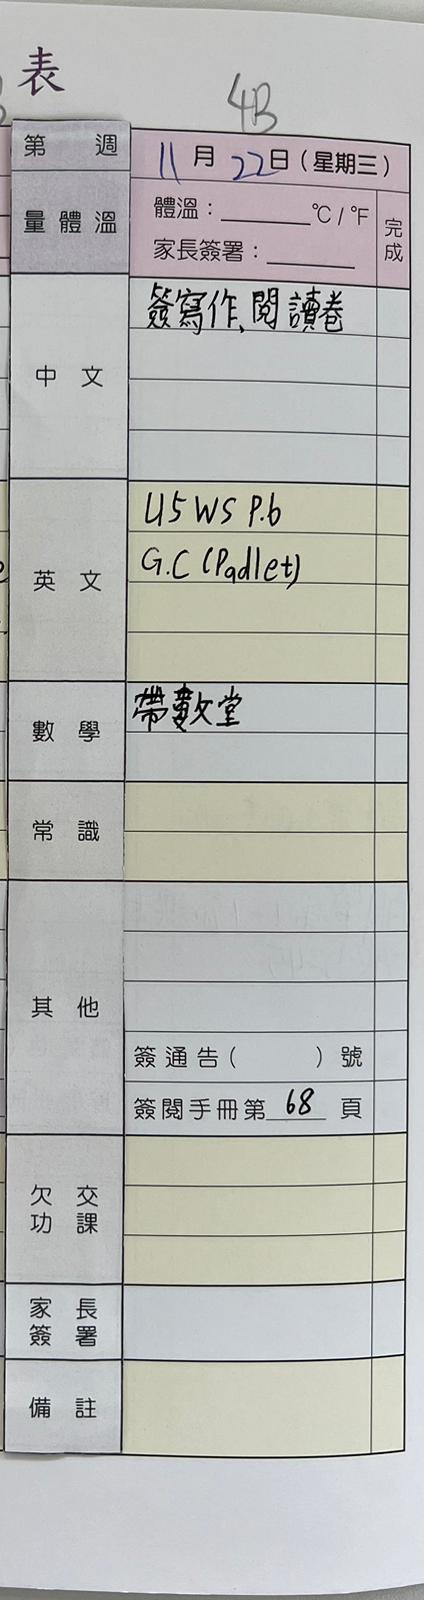 表
4B
第 週
11月22日（星期三）
量體溫
體溫：______°C / °F
家長簽署：______
完成
中文
簽寫作、閱讀卷
英文
U5 WS P.6
G.C (Padlet)
數學
帶數堂
常識
其他
簽通告（ ）號
簽閱手冊第 68 頁
欠交
功課
家長
簽署
備註